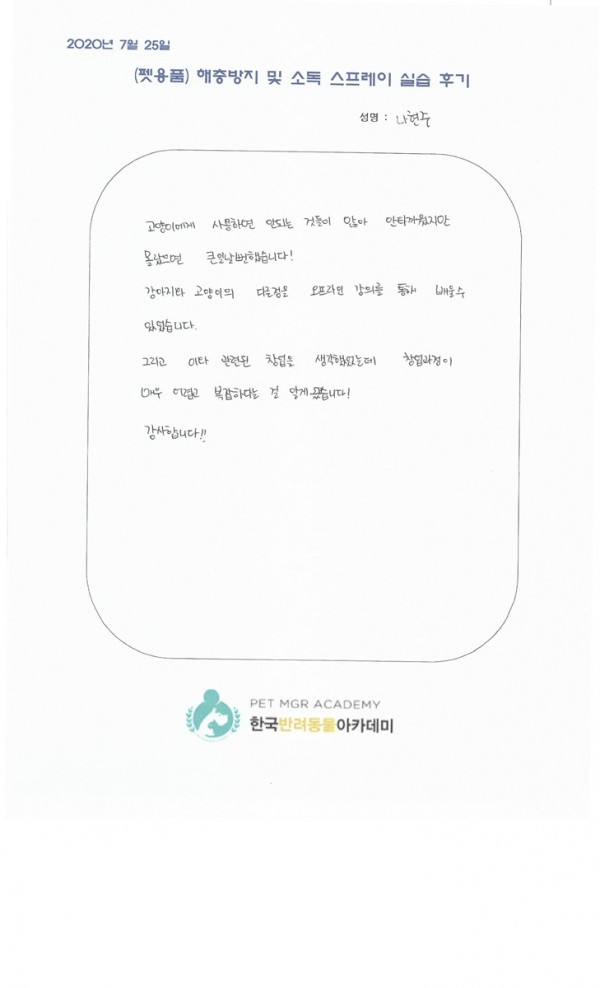 2020년 7월 25일
(펫용품) 해충방지 및 소독 스프레이 실습 후기
성명 : 나현주
고양이에게 사용하면 안되는 것들이 많아 안타까웠지만
몰랐으면 큰일날뻔했습니다!
강아지와 고양이의 다른점을 오프라인 강의를 통해 배울수
있었습니다.
그리고 이와 관련된 창업을 생각했었는데 창업과정이
매우 어렵고 복잡하다는 걸 알게됐습니다!
감사합니다!!
PET MGR ACADEMY
한국반려동물아카데미